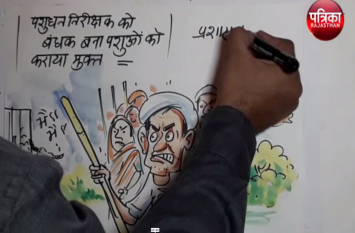 पशुधन निरीक्षक को
बंधक बना पशुओं को
कराया मुक्त
पत्रिका
RAJASTHAN
प्रशास
में
में